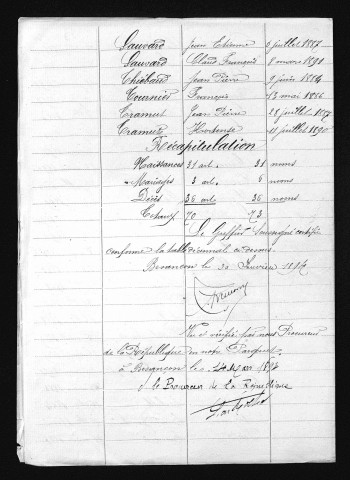 Sauvard Jean Etienne 6 juillet 1887
Sauvard Claud François 8 mars 1891
Thiébaud Jean Pierre 9 juin 1884
Tournier François 13 mai 1886
Tramut Jean Pierre 28 juillet 1887
Tramut Hortense 11 juillet 1890
Récapitulation
Naissances 31 art. 31 noms
Mariages 3 art. 6 noms
Décès 36 art. 36 noms
70 73
Le Greffier soussigné certifie
conforme la table décennale ci dessus
Besançon le 30 Janvier 1894
Vu et vérifié par nous Procureur
de la République en notre Parquet
à Besançon le 1894
le Procureur de la République